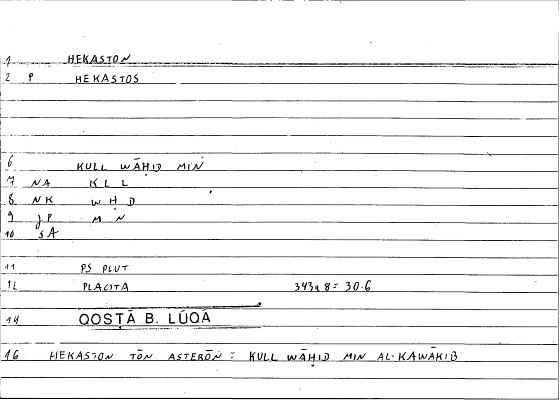 1 HEKASTON
2 P HEKASTOS
6 KULL WĀḤID MIN
7 NA KLL
8 NK WḤD
9 JP MN
10 SA
11 PS PLUT
12 PLACITA 343a8 = 30.6
14 QOSṬĀ B. LŪQĀ
16 HEKASTON TŌN ASTERŌN = KULL WĀḤID MIN AL-KAWĀKIB